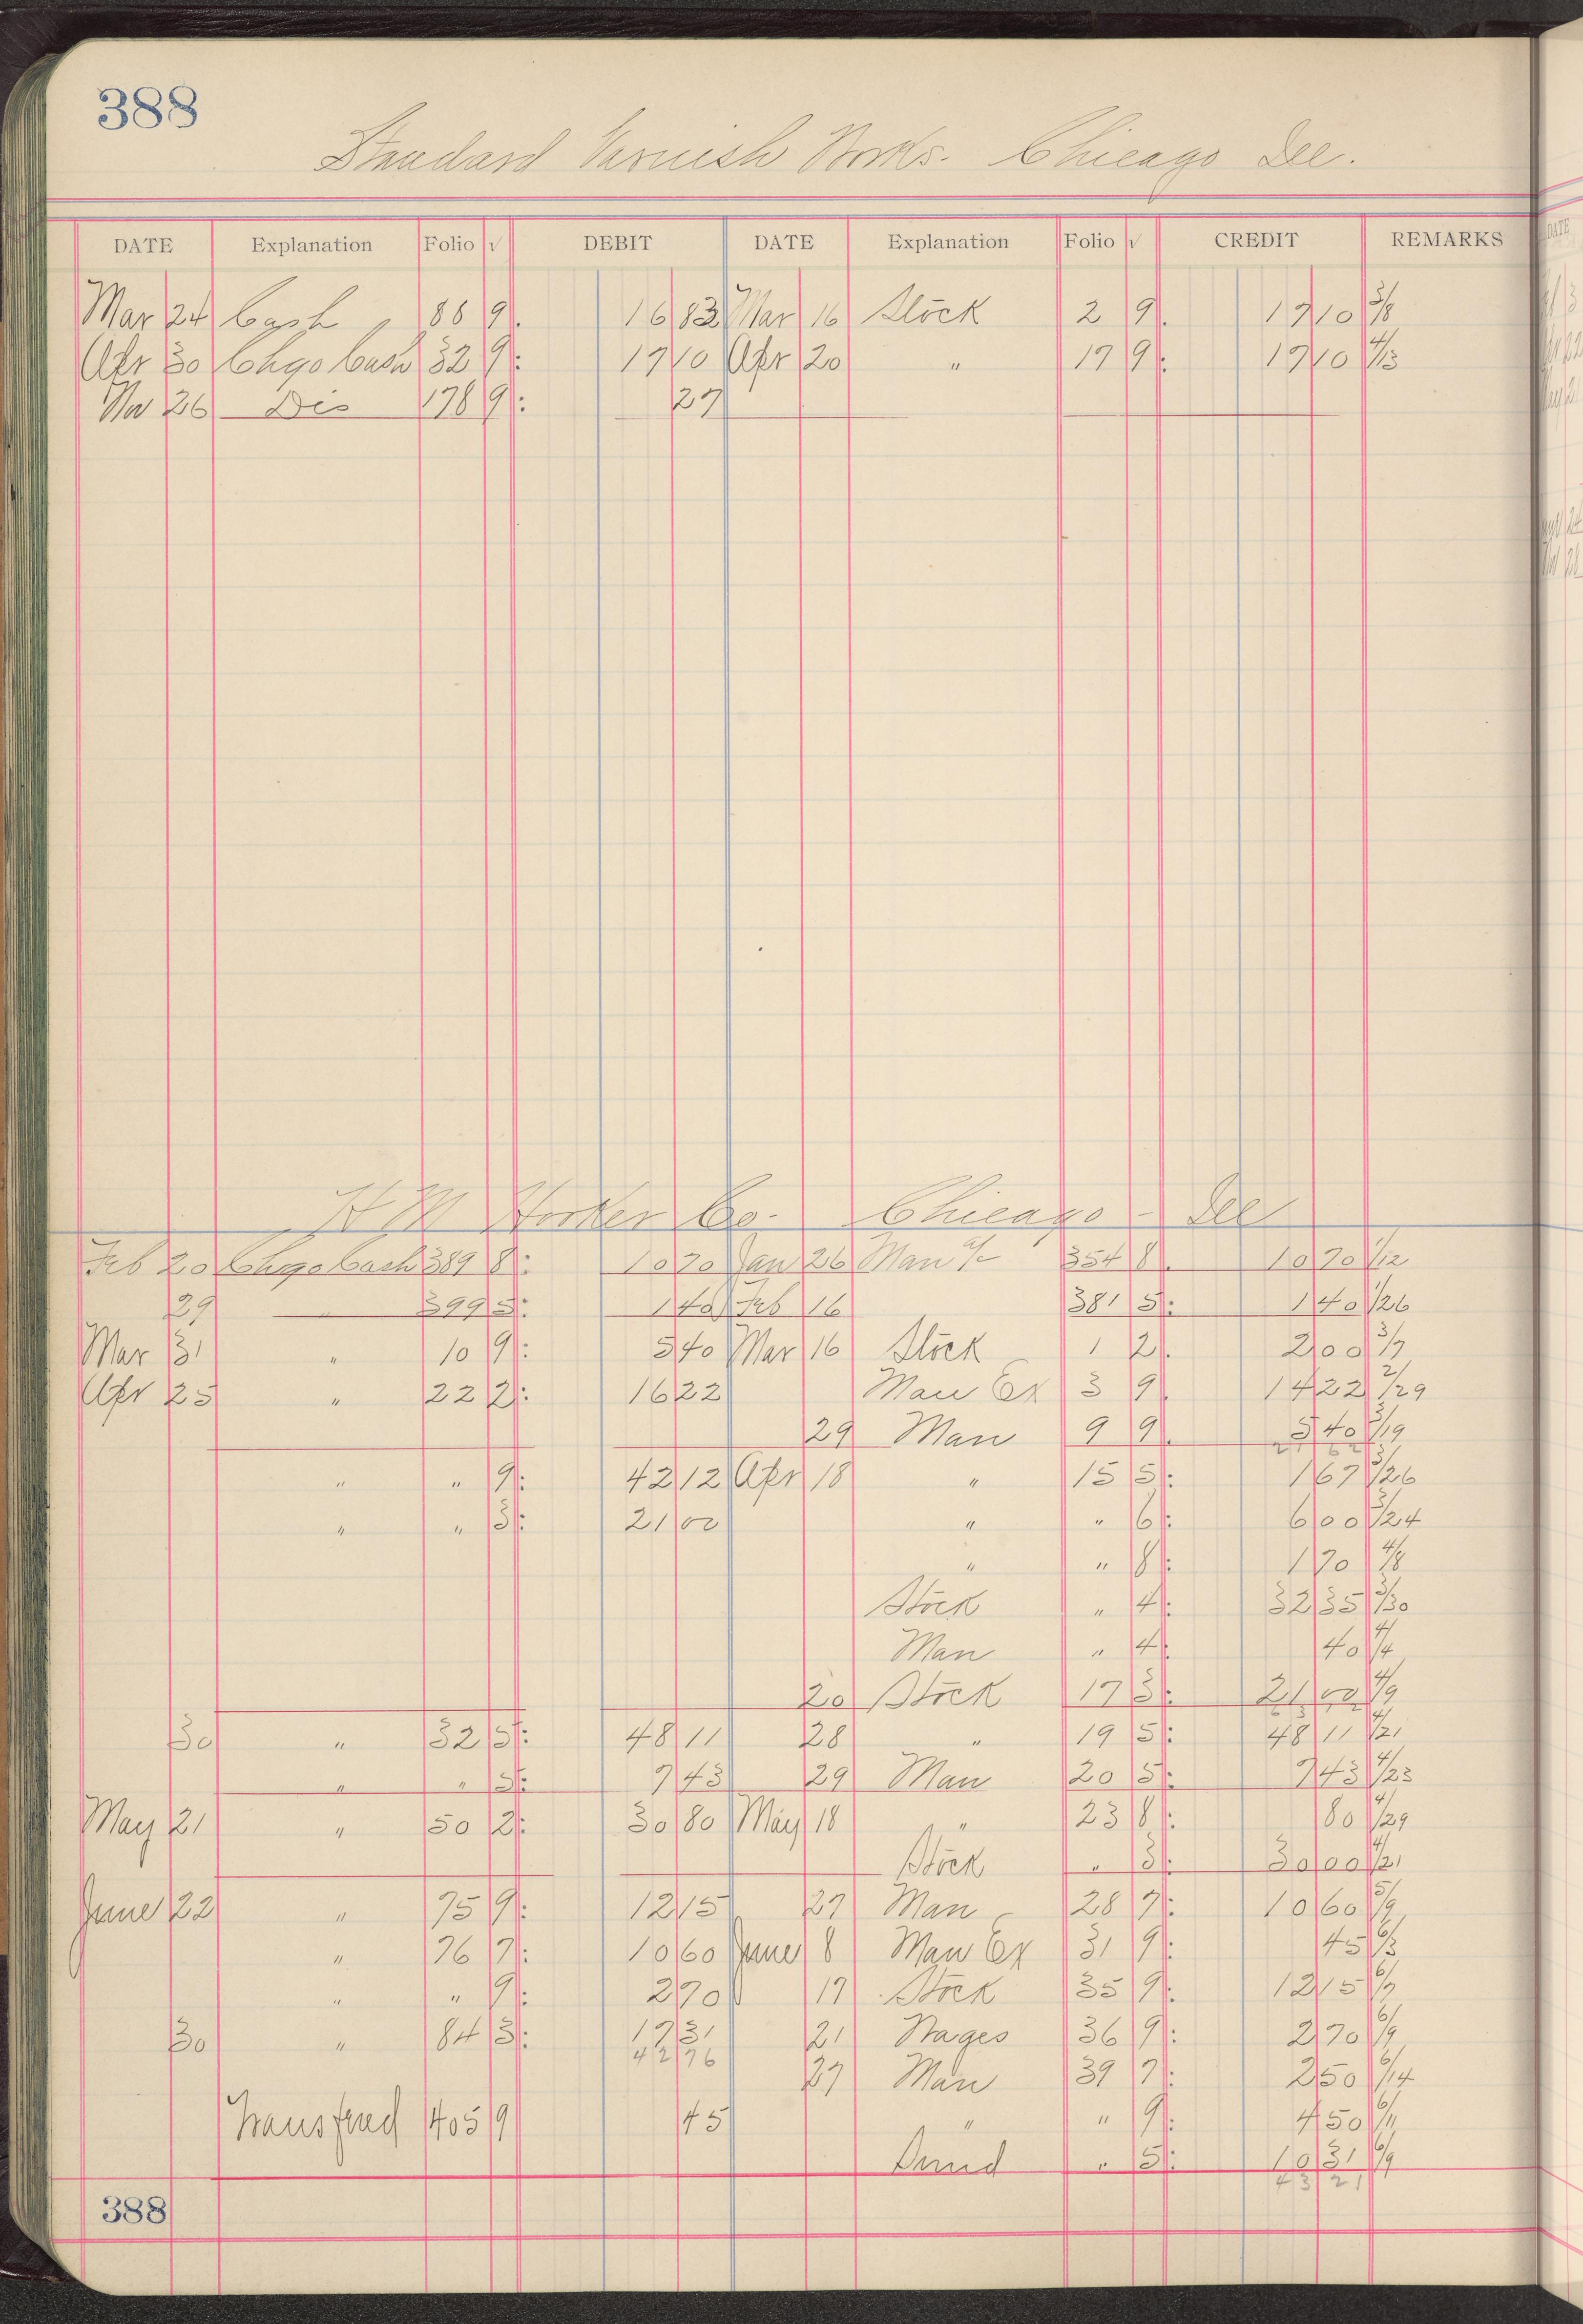 388
Standard Varnish Works. Chicago Ill.
DATE Explanation Folio √ DEBIT DATE Explanation Folio √ CREDIT REMARKS
Mar 24 Cash 88 9. 16 83 Mar 16 Stock 2 9. 17 10 3/8
Apr 30 Chgo Cash 32 9: 17 10 Apr 20 " 17 9: 17 10 4/13
Nov 26 Dis 178 9: 27
H M Hooker Co. Chicago - Ill
Feb 20 Chgo Cash 389 8: 10 70 Jan 26 Man a/c 354 8. 10 70 1/12
29 " 399 5: 1 40 Feb 16 381 5: 1 40 1/26
Mar 31 " 10 9: 5 40 Mar 16 Stock 1 2. 2 00 3/7
Apr 25 " 22 2: 16 22 Man Ex 3 9. 14 22 2/29
29 Man 9 9. 5 40 3/19
21 62
" " 9: 42 12 Apr 18 " 15 5: 1 67 3/26
" " 3: 21 00 " " 6: 6 00 3/24
" " 8: 1 70 4/8
Stock " 4: 32 35 3/30
Man " 4: 40 4/4
20 Stock 17 3: 21 00 4/9
30 " 32 5: 48 11 28 " 19 5: 48 11 4/21
" " 5: 7 43 29 Man 20 5: 7 43 4/23
May 21 " 50 2: 30 80 May 18 " 23 8: 80 4/29
Stock " 3: 30 00 4/21
June 22 " 75 9: 12 15 27 Man 28 7: 10 60 5/9
" 76 7: 10 60 June 8 Man Ex 31 9: 45 6/3
" " 9: 2 70 17 Stock 35 9: 12 15 6/7
30 " 84 3: 17 31 21 Wages 36 9: 2 70 6/9
42 76
27 Man 39 7: 2 50 6/14
Transfered 405 9 45 " " 9: 4 50 6/11
" 5: 10 31 6/9
43 21
388